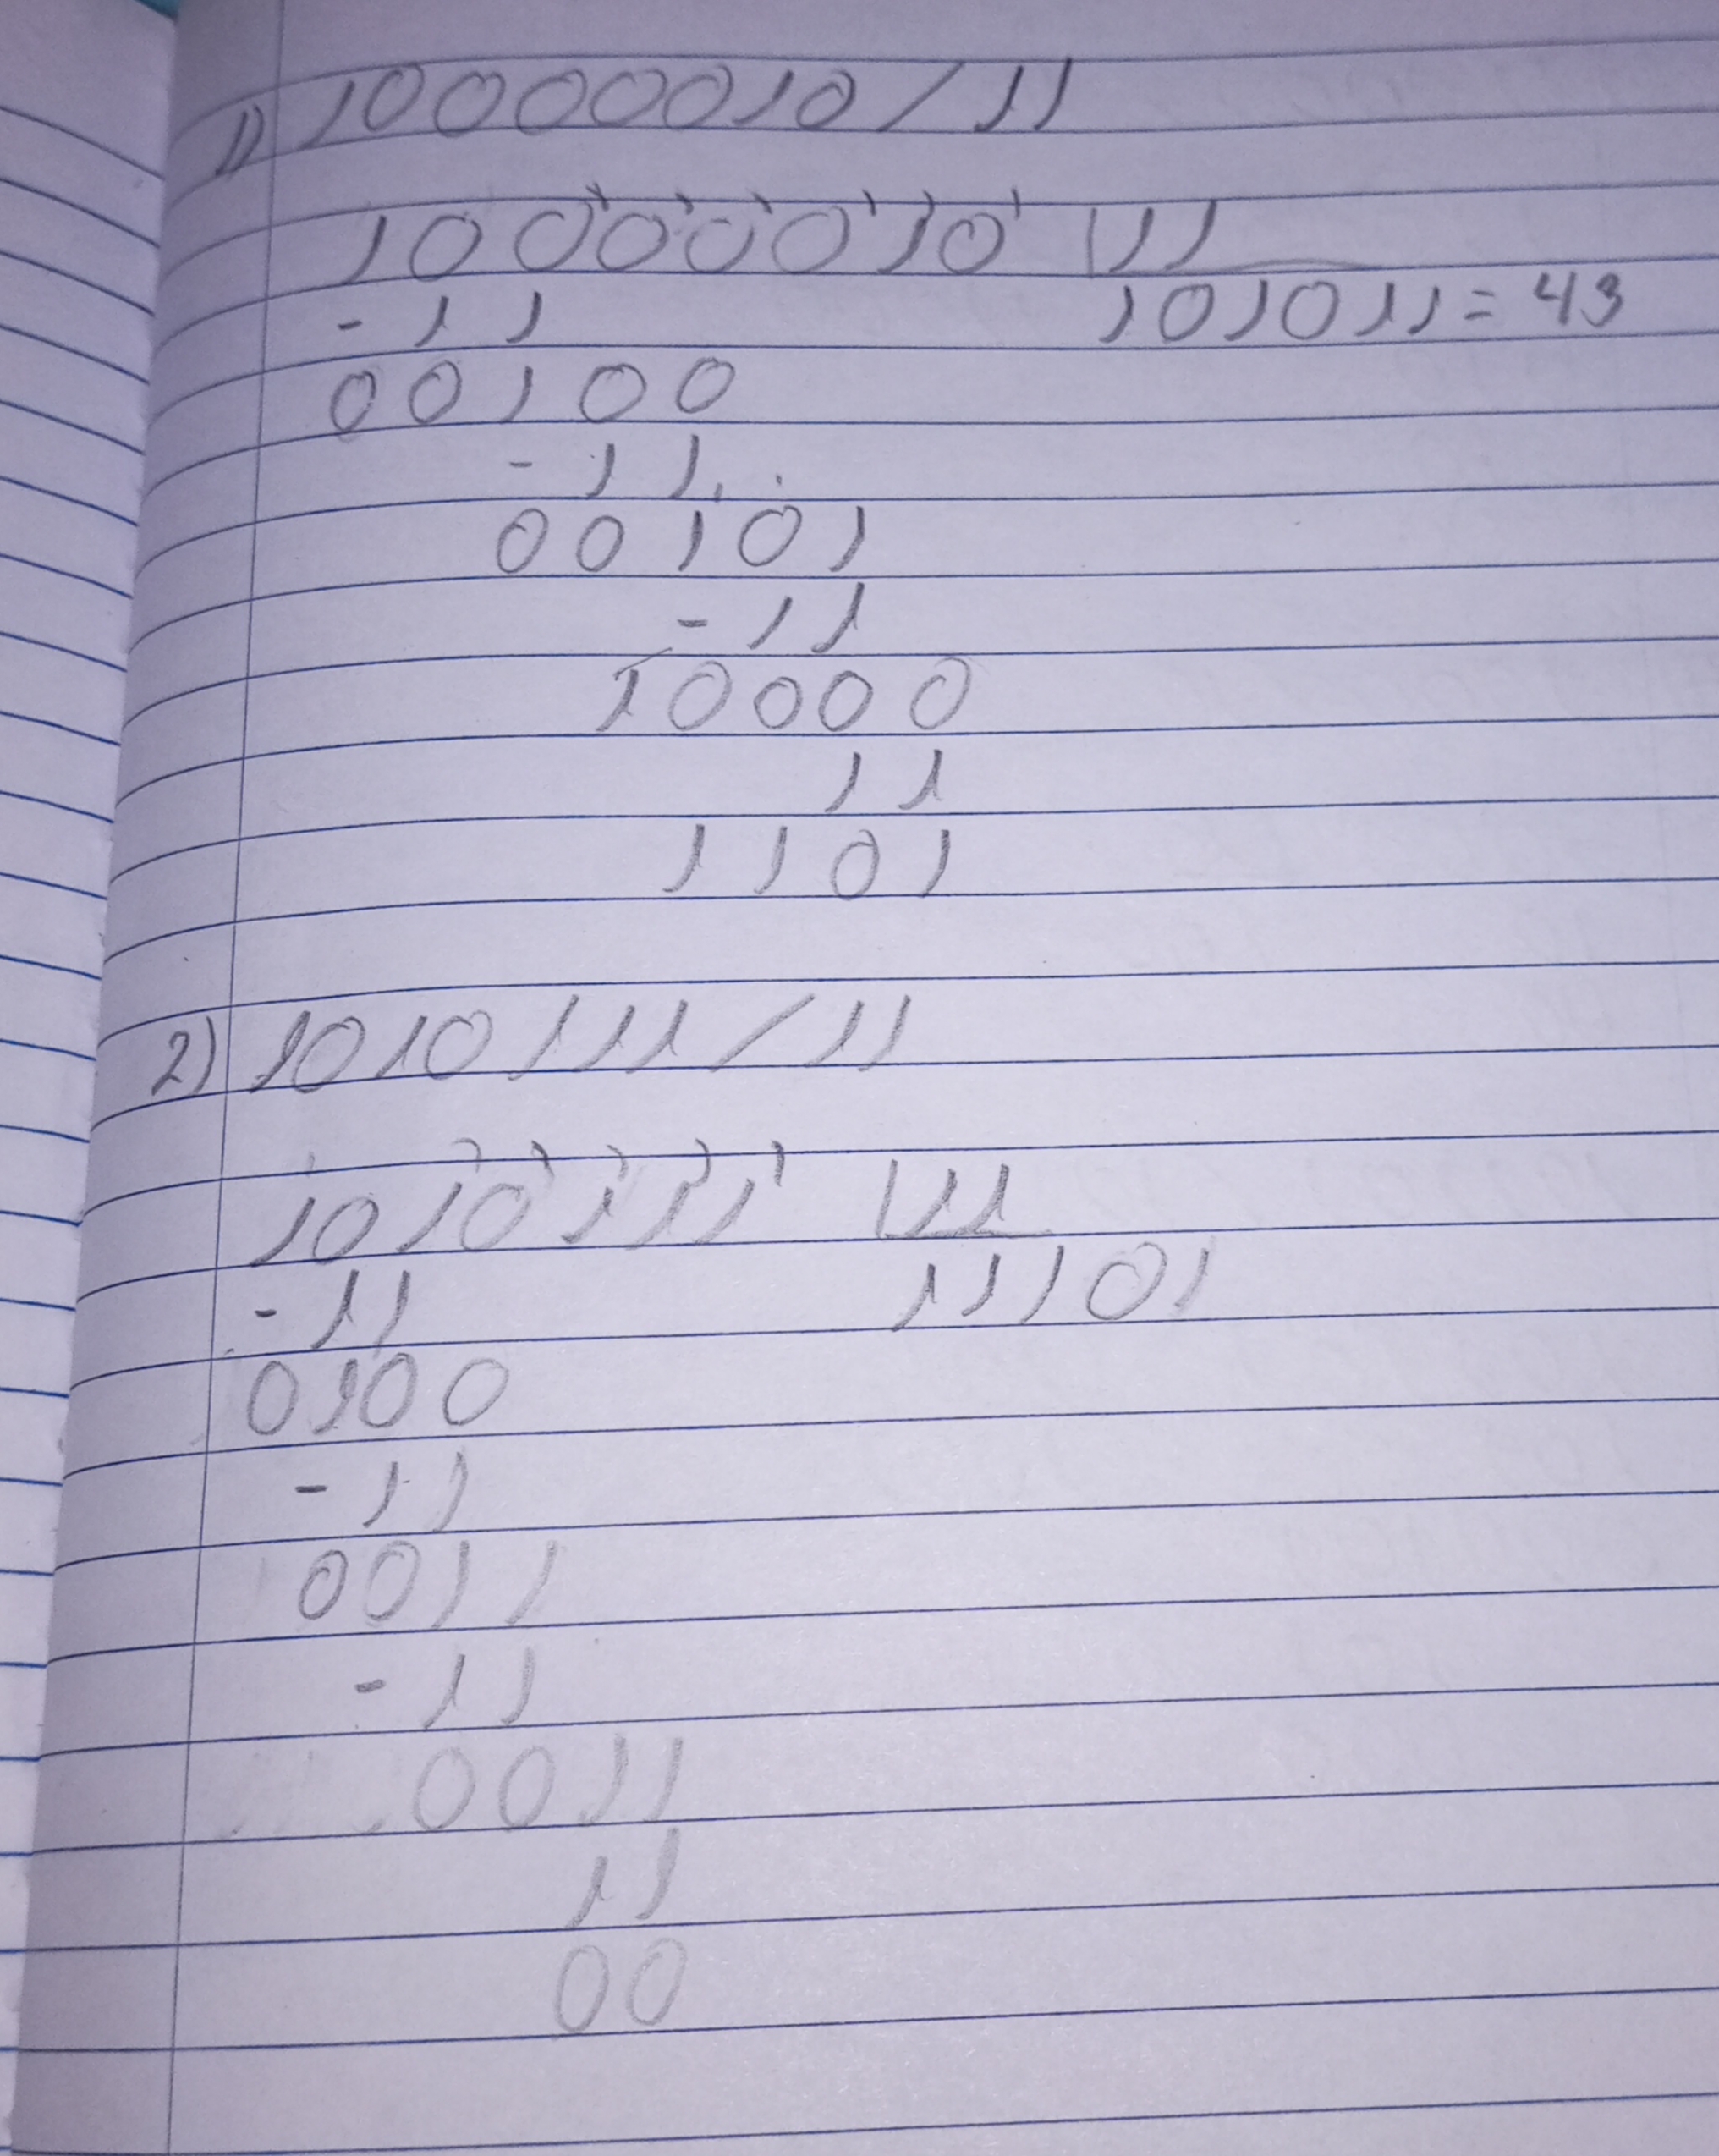 1) 10000010 / 11
10000010 11
- 11 101011 = 43
00100
- 11
00101
- 11
10000
11
1101
2) 1010111 / 11
1010111 11
- 11 11101
0100
- 11
0011
- 11
0011
11
00